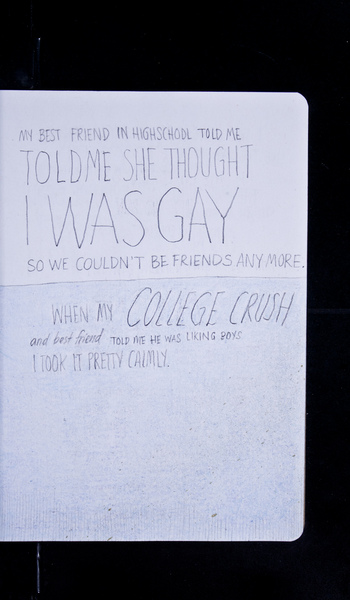 MY BEST FRIEND IN HIGHSCHOOL TOLD ME
TOLD ME SHE THOUGHT
I WAS GAY
SO WE COULDN'T BE FRIENDS ANY MORE.
WHEN MY COLLEGE CRUSH
and best friend TOLD ME HE WAS LIKING BOYS
I TOOK IT PRETTY CALMLY.